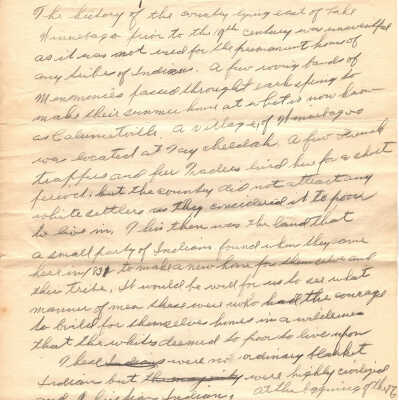 The history of the country lying east of Lake
Winnebago prior to the 19th century was uneventful
as it was not used for the permanent home of
any tribes of Indians. A few roving bands of
Menomonies passed through each spring to
make their summer home at what is now know
as Calumetville. A village of Winnebagoo
was located at Tay cheedah. A few French
trappers and fur Traders lived her for a short
period, but the country did not attract any
white settlers as they considered it to poor
to live in. This then was the land that
a small party of Indians found when they came
here in to make a new home for themselves and
their tribe. It would be well for us to see what
manner of men these were who had the courage
to build for themselves homes in a wilderness
that the whites deemed to poor to live upon
These Indians were not ordinary blanket
Indians but the majority were highly civilized
and Christian Indians. At the beginning of the